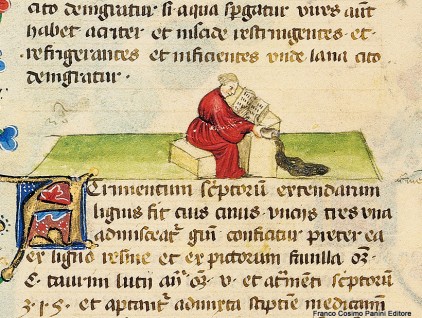 cito denigratur si aqua spgatur vires aut
habet acriter et inscide restringentes et
refrigerantes et inficientes unde lana cito
denigratur.
Atrimentum scptoru extendarum
lignis fit cuius cinus unciis tres una
admisceat gum conficitur preter ea
ex ligno resine et ex pictorum favilla
E. taurini lutii v et atmeti scptorum
et aptant admixta sciptice medicam
Franco Cosimo Panini Editore